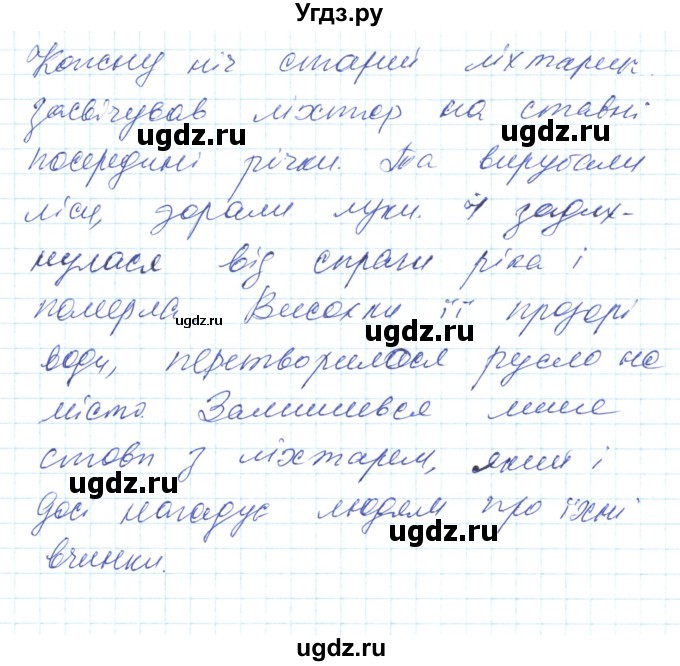 Угдз.ру
Кожну ніч старий ліхтарик
засвічував ліхтар на ставні
посередині річки. Та вирубали
ліси, зорали луки. І задих-
нулася від спраги ріка і
померла. Висохли її прозорі
води, перетворилося русло на
місто. Залишився лише
стовп з ліхтарем, який і
досі нагадує людям про їхні
вчинки.
ugdz.ru
ugdz.ru
ugdz.ru
ugdz.ru
ugdz.ru
ugdz.ru
ugdz.ru
ugdz.ru
ugdz.ru